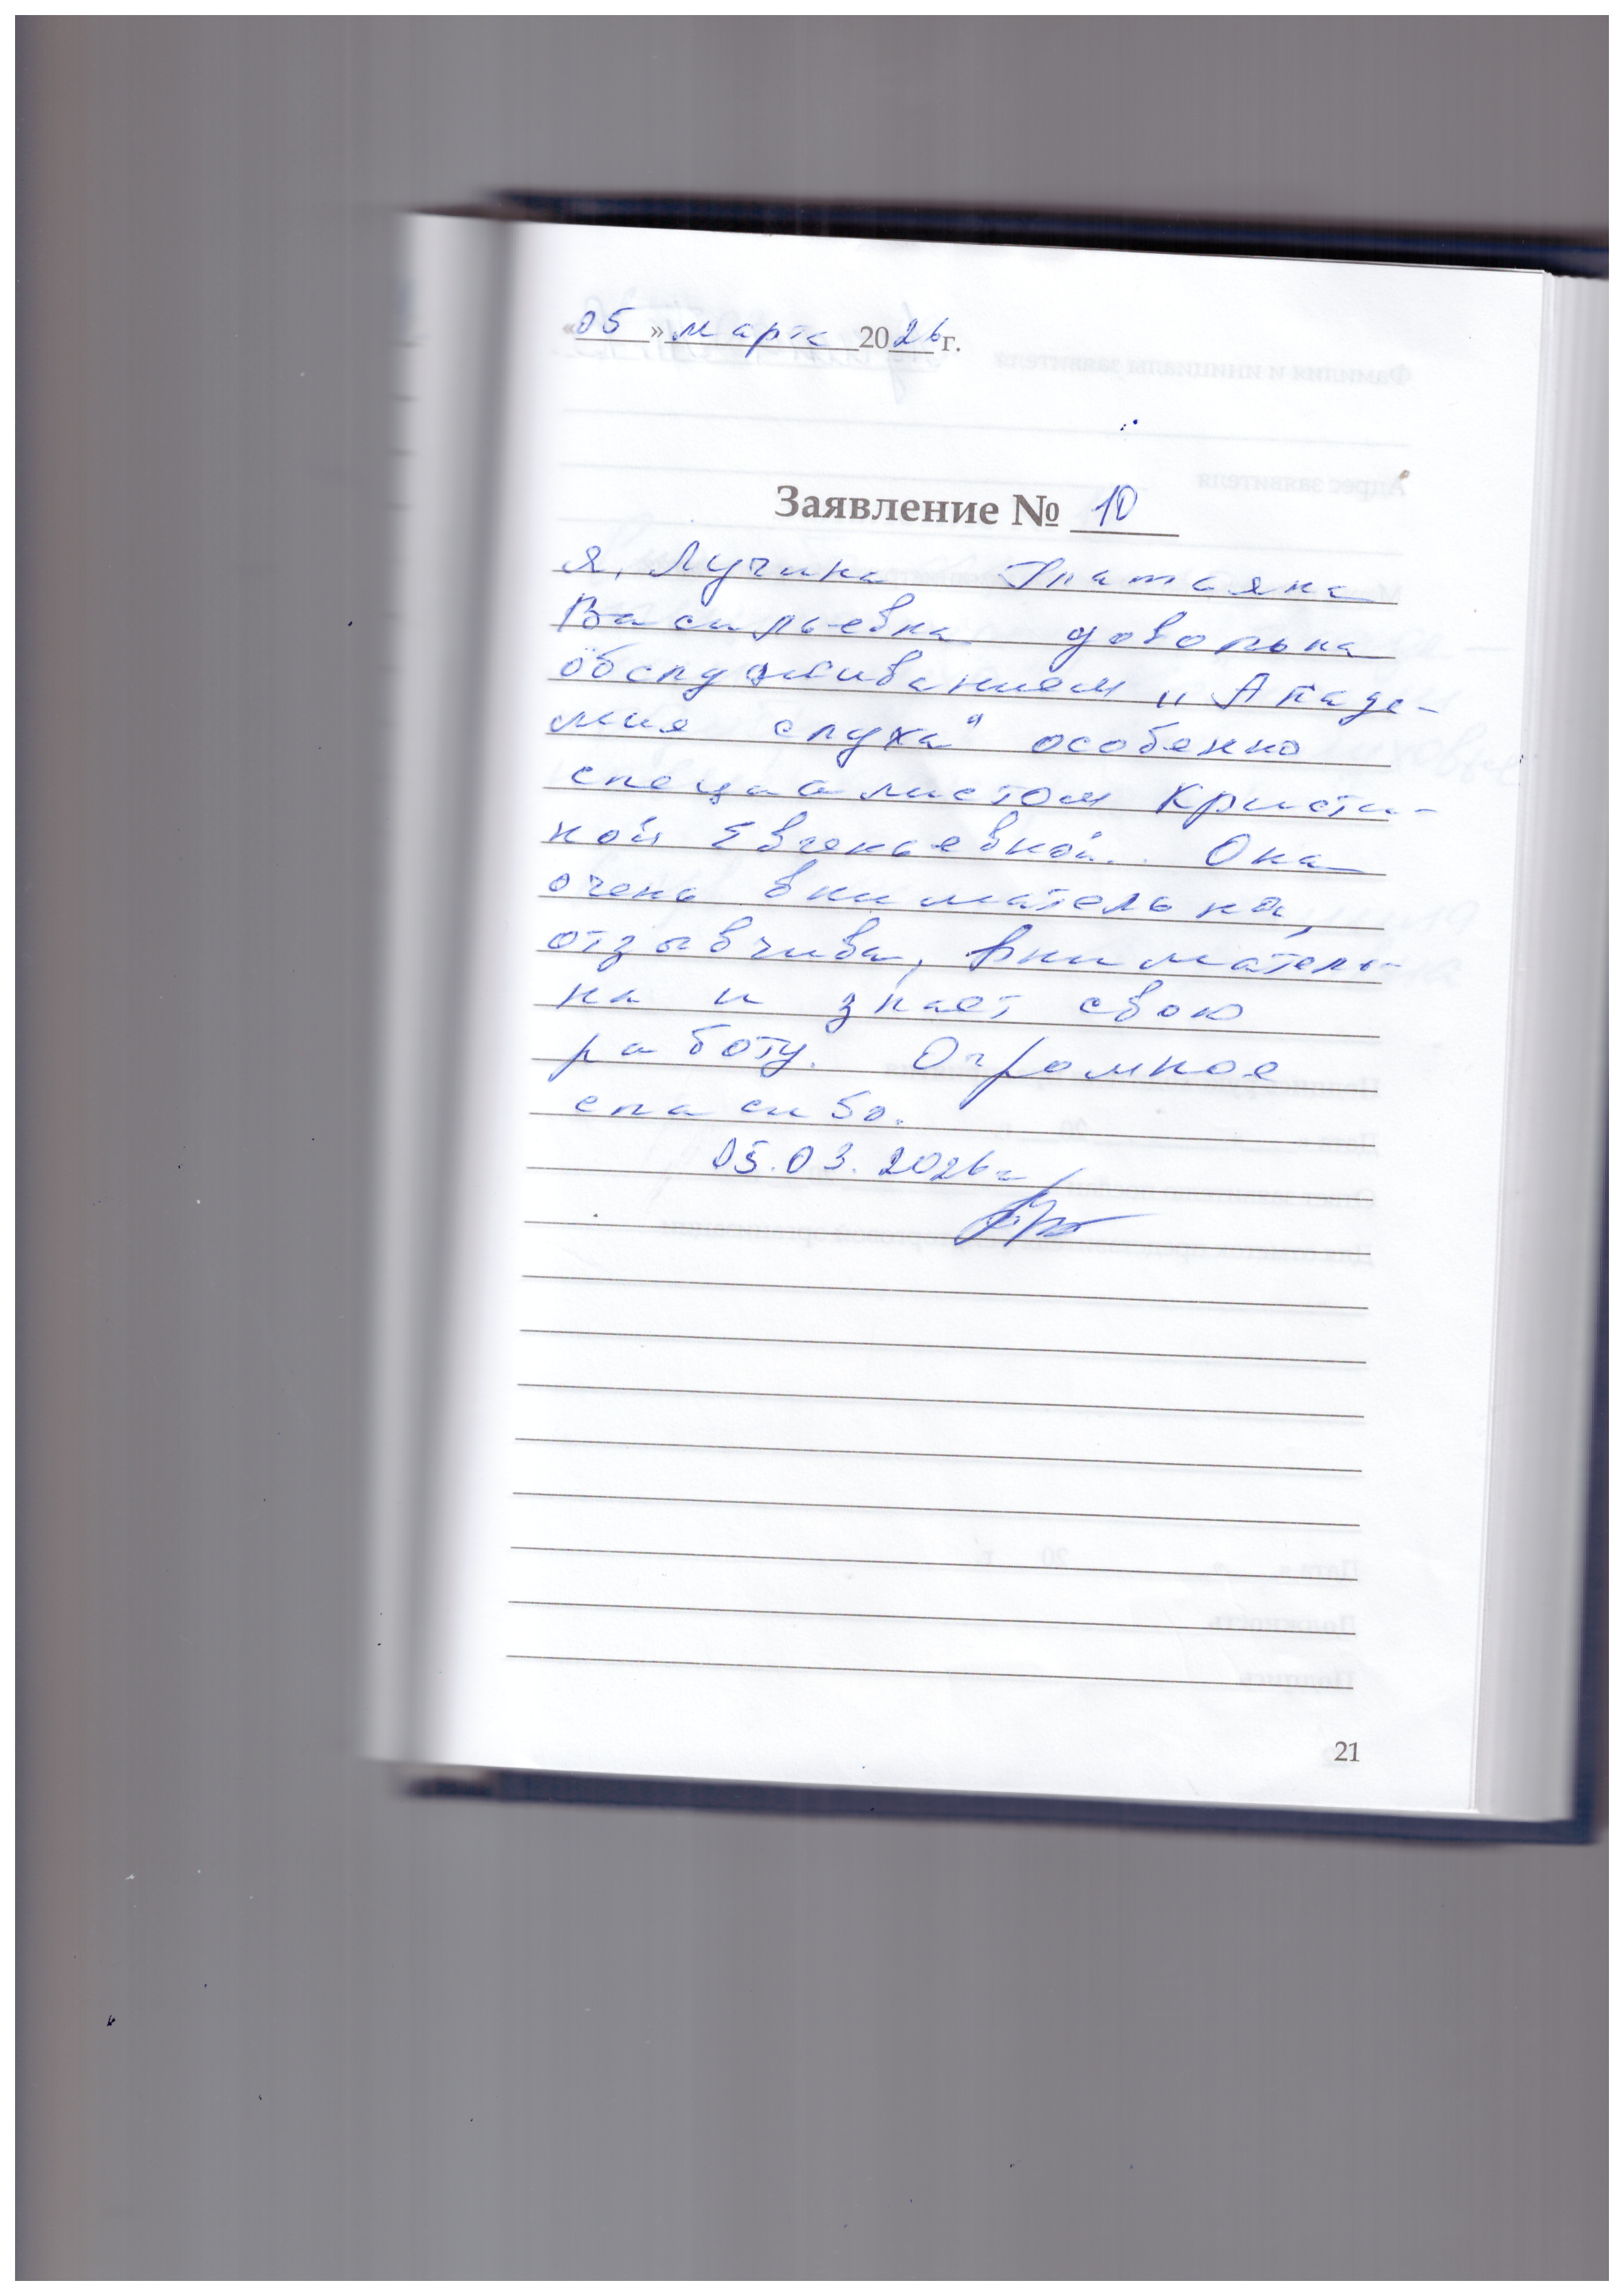 «05» марта 2026 г.
Заявление № 10
я, Лучина Татьяна
Васильевна довольна
обслуживанием „Акаде-
мия слуха" особенно
специалистом Кристи-
ной Евгеньевной. Она
очень внимательна,
отзывчива, вниматель-
на и знает свою
работу. Огромное
спасибо.
05.03.2026г
21